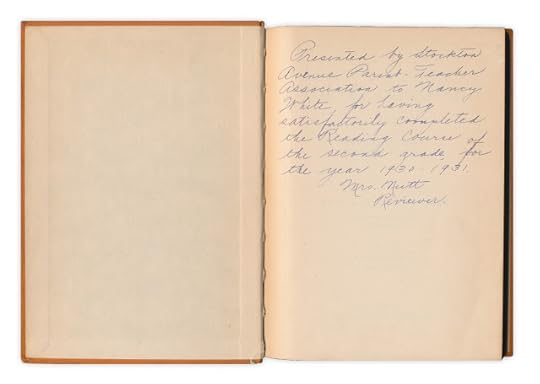 Presented by Stockton
Avenue Parent-Teacher
Association to Nancy
White, for having
satisfactorily coompleted
the Reading Course of
the second grade for
the year 1930-1931.
Mrs. Nutt
Reviewer.